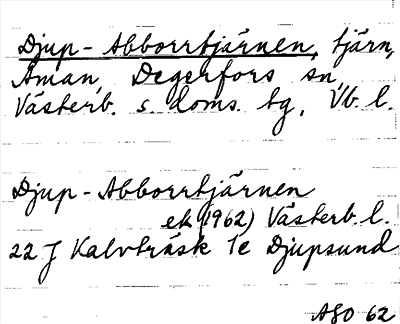 Djup-Abborrtjärnen, tjärn,
Åman, Degerfors sn,
Västerb. s. doms. tg, Vb. l.
Djup-Abborrtjärnen
ek (1962) Västerb. l.
22 J Kalvträsk 1e Djupsund
ASO 62